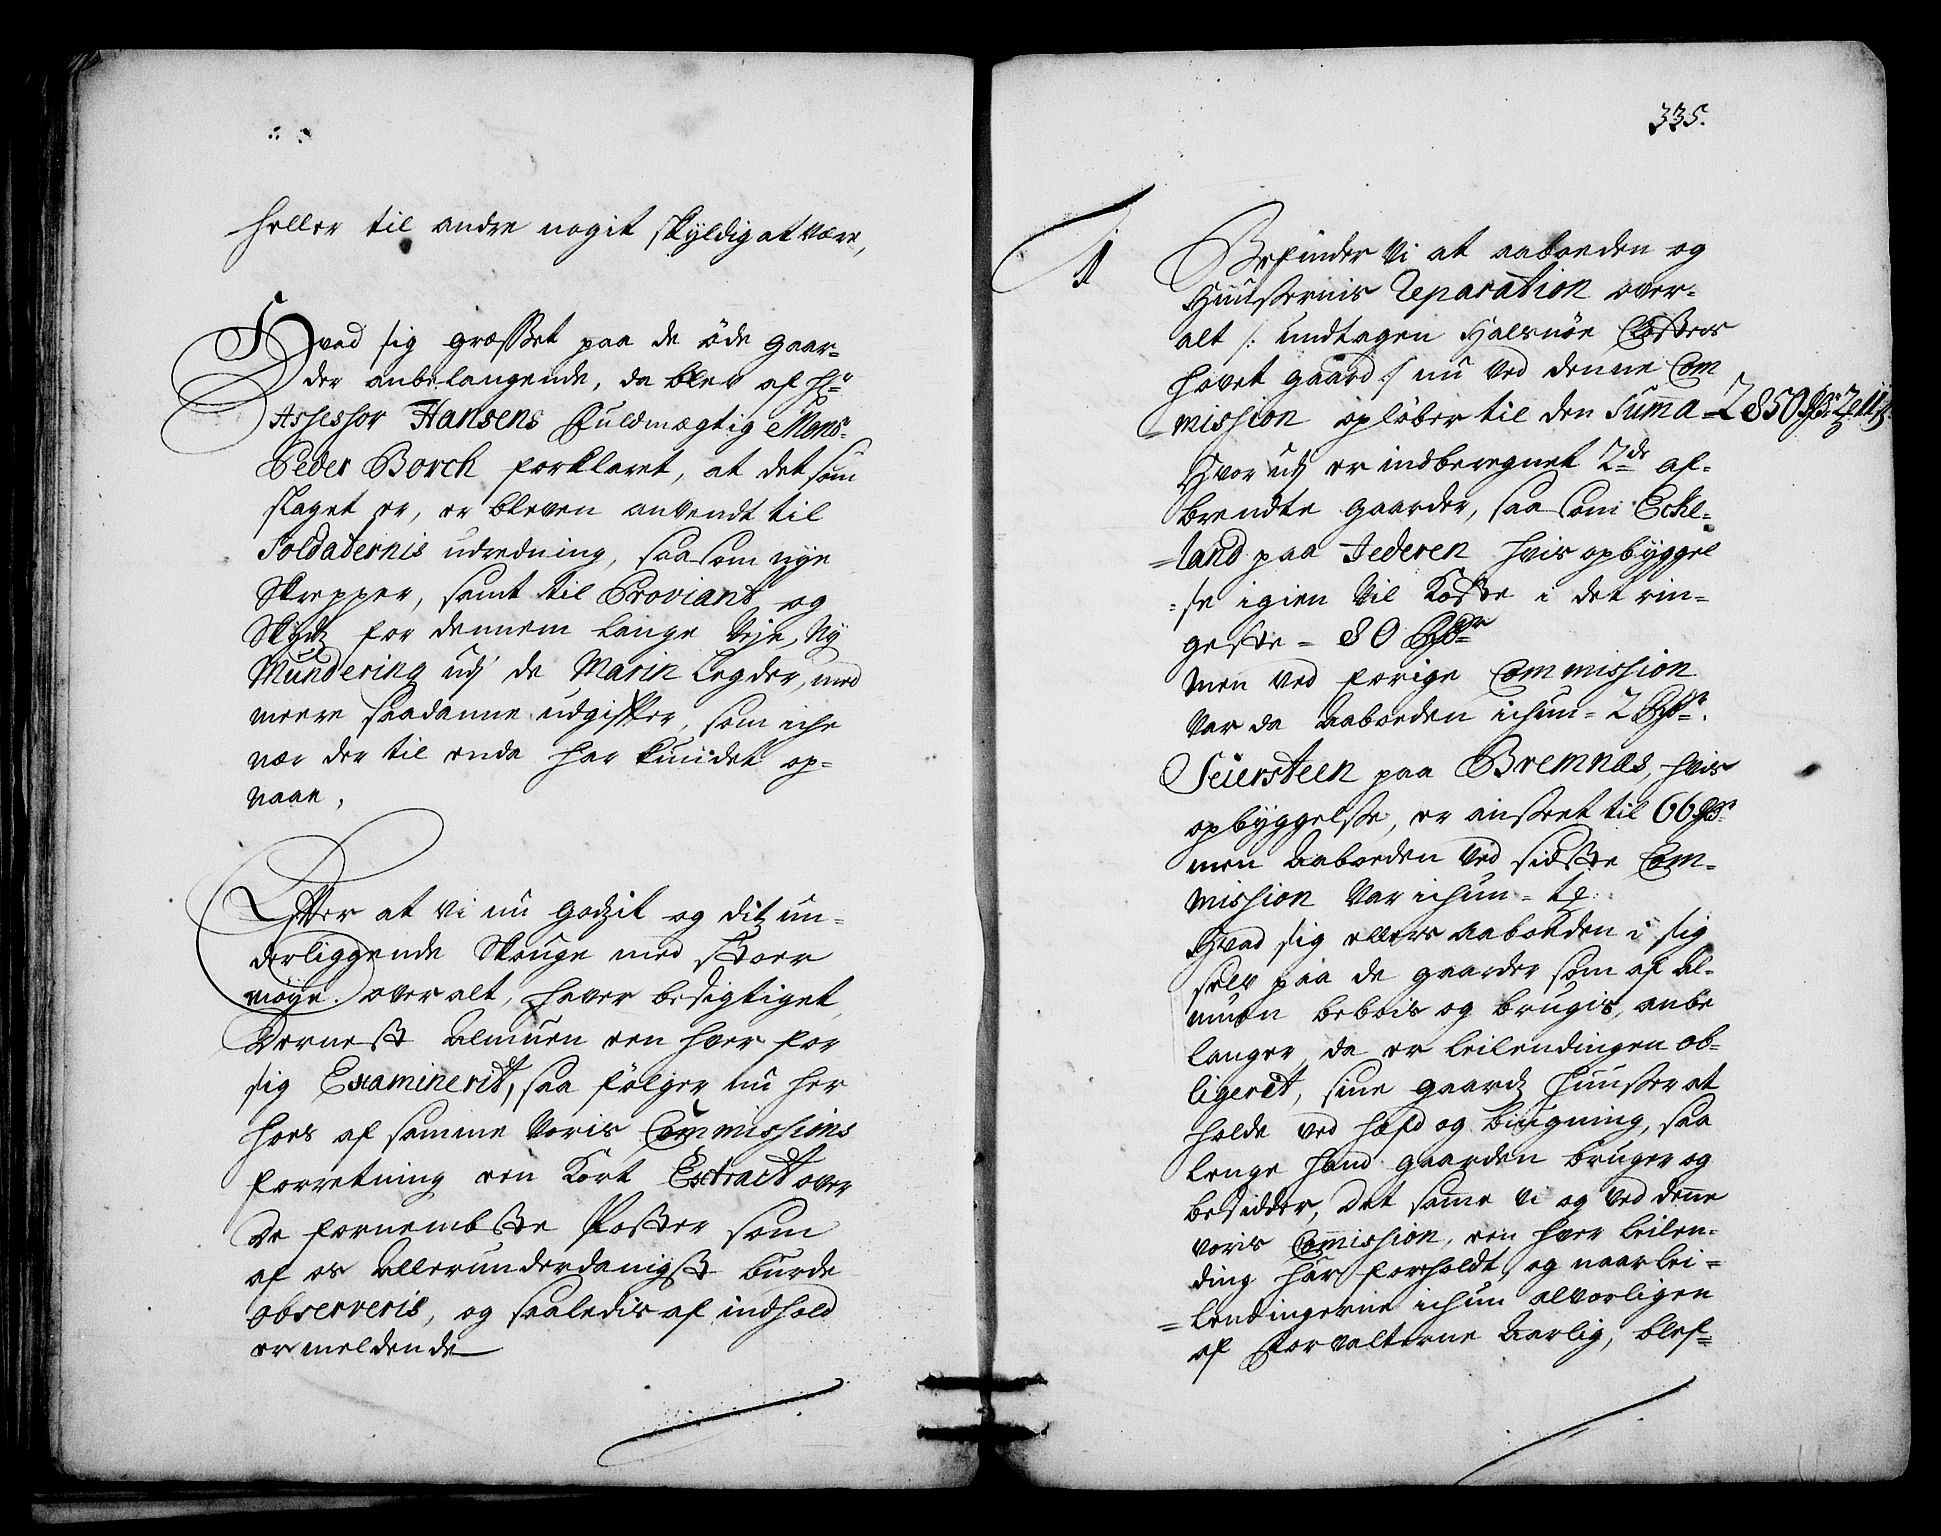 heller til andre nogit skyldig at være,
Hvad sig græsset paa de öde gaar-
der anbelangende, da blev af Hr
Assessor Hansens Fuldmægtig Monsr
Peder Borch forklaret, at det som
slaget er, er bleven anvendt til
Soldaternis udredning, saasom nye
Skrepper, samt til Proviant og
Skydtz for dennem lange Veje, Ny
Mundering udj de Marin Legder, med
meere saadanne udgifter, som iche
nær der til enda har kundet op-
naae,
Efter at vi nu godzit og ditz un-
derliggende Skouge med stoer
möye over alt, haver besigtiget,
Dernest Almuen een hver for
sig Examinerit, saa fölger nu her
hoes af samme Voris Commissions
forretning een Kort Extract over
De fornembste Poster som
af os Allerunderdanigst burde
observeris, og saaledis af indhold
er meldende
335.
1
Befinder Vi at aaboeden og
Huussernis Reparation over-
alt /: undtagen Halsnöe Closters
hovet gaard :/ nu ved denne Com
=mission oplöber til den Summa - 2850 Rdr 2
Hvor udj er indberegnet 2de af-
brendte gaarder, saasom Eche-
=land paa Jederen hvis opbÿggel
=se igien Vil Koste i det rin-
geste - 80 Rdr
Men ved forige Commission
var da Aaboeden ichun - 2 Rdr.
Seiersteen paa Bremnæs, hvis
opbyggelse, er ansseet til 66 Rdr
men Aaboeden Ved sidste Com-
mission Var ichun -
Hvad sig ellers Aaboeden i sig
selv paa de gaarder som af Al-
muen beboes og brugis, anbe
langer, da er leilendingen ob-
ligerit, sine gaardz Huusser at
holde ved hæfd og bÿgning, saa
lenge hand gaarden bruger og
besidder, Det samme Vi og ved denne
voris Commission, een hver leilen-
ding har foreholdt, og naar lei-
=lendingerne ichun alvorligen
af Forvalterne Aarlig, blef-